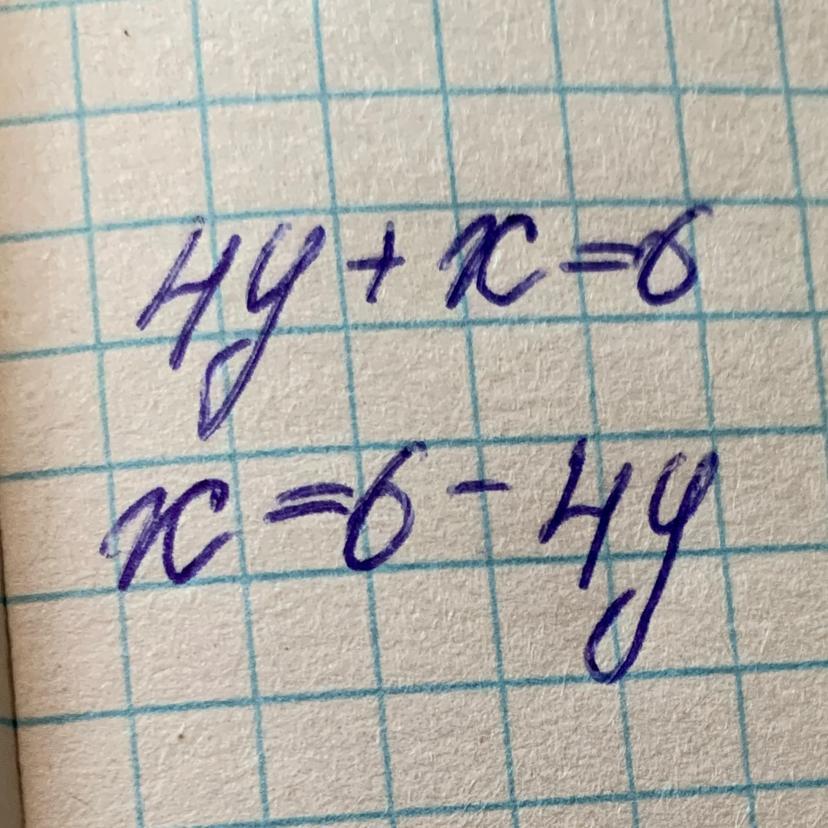 4y + x = 6
x = 6 - 4y